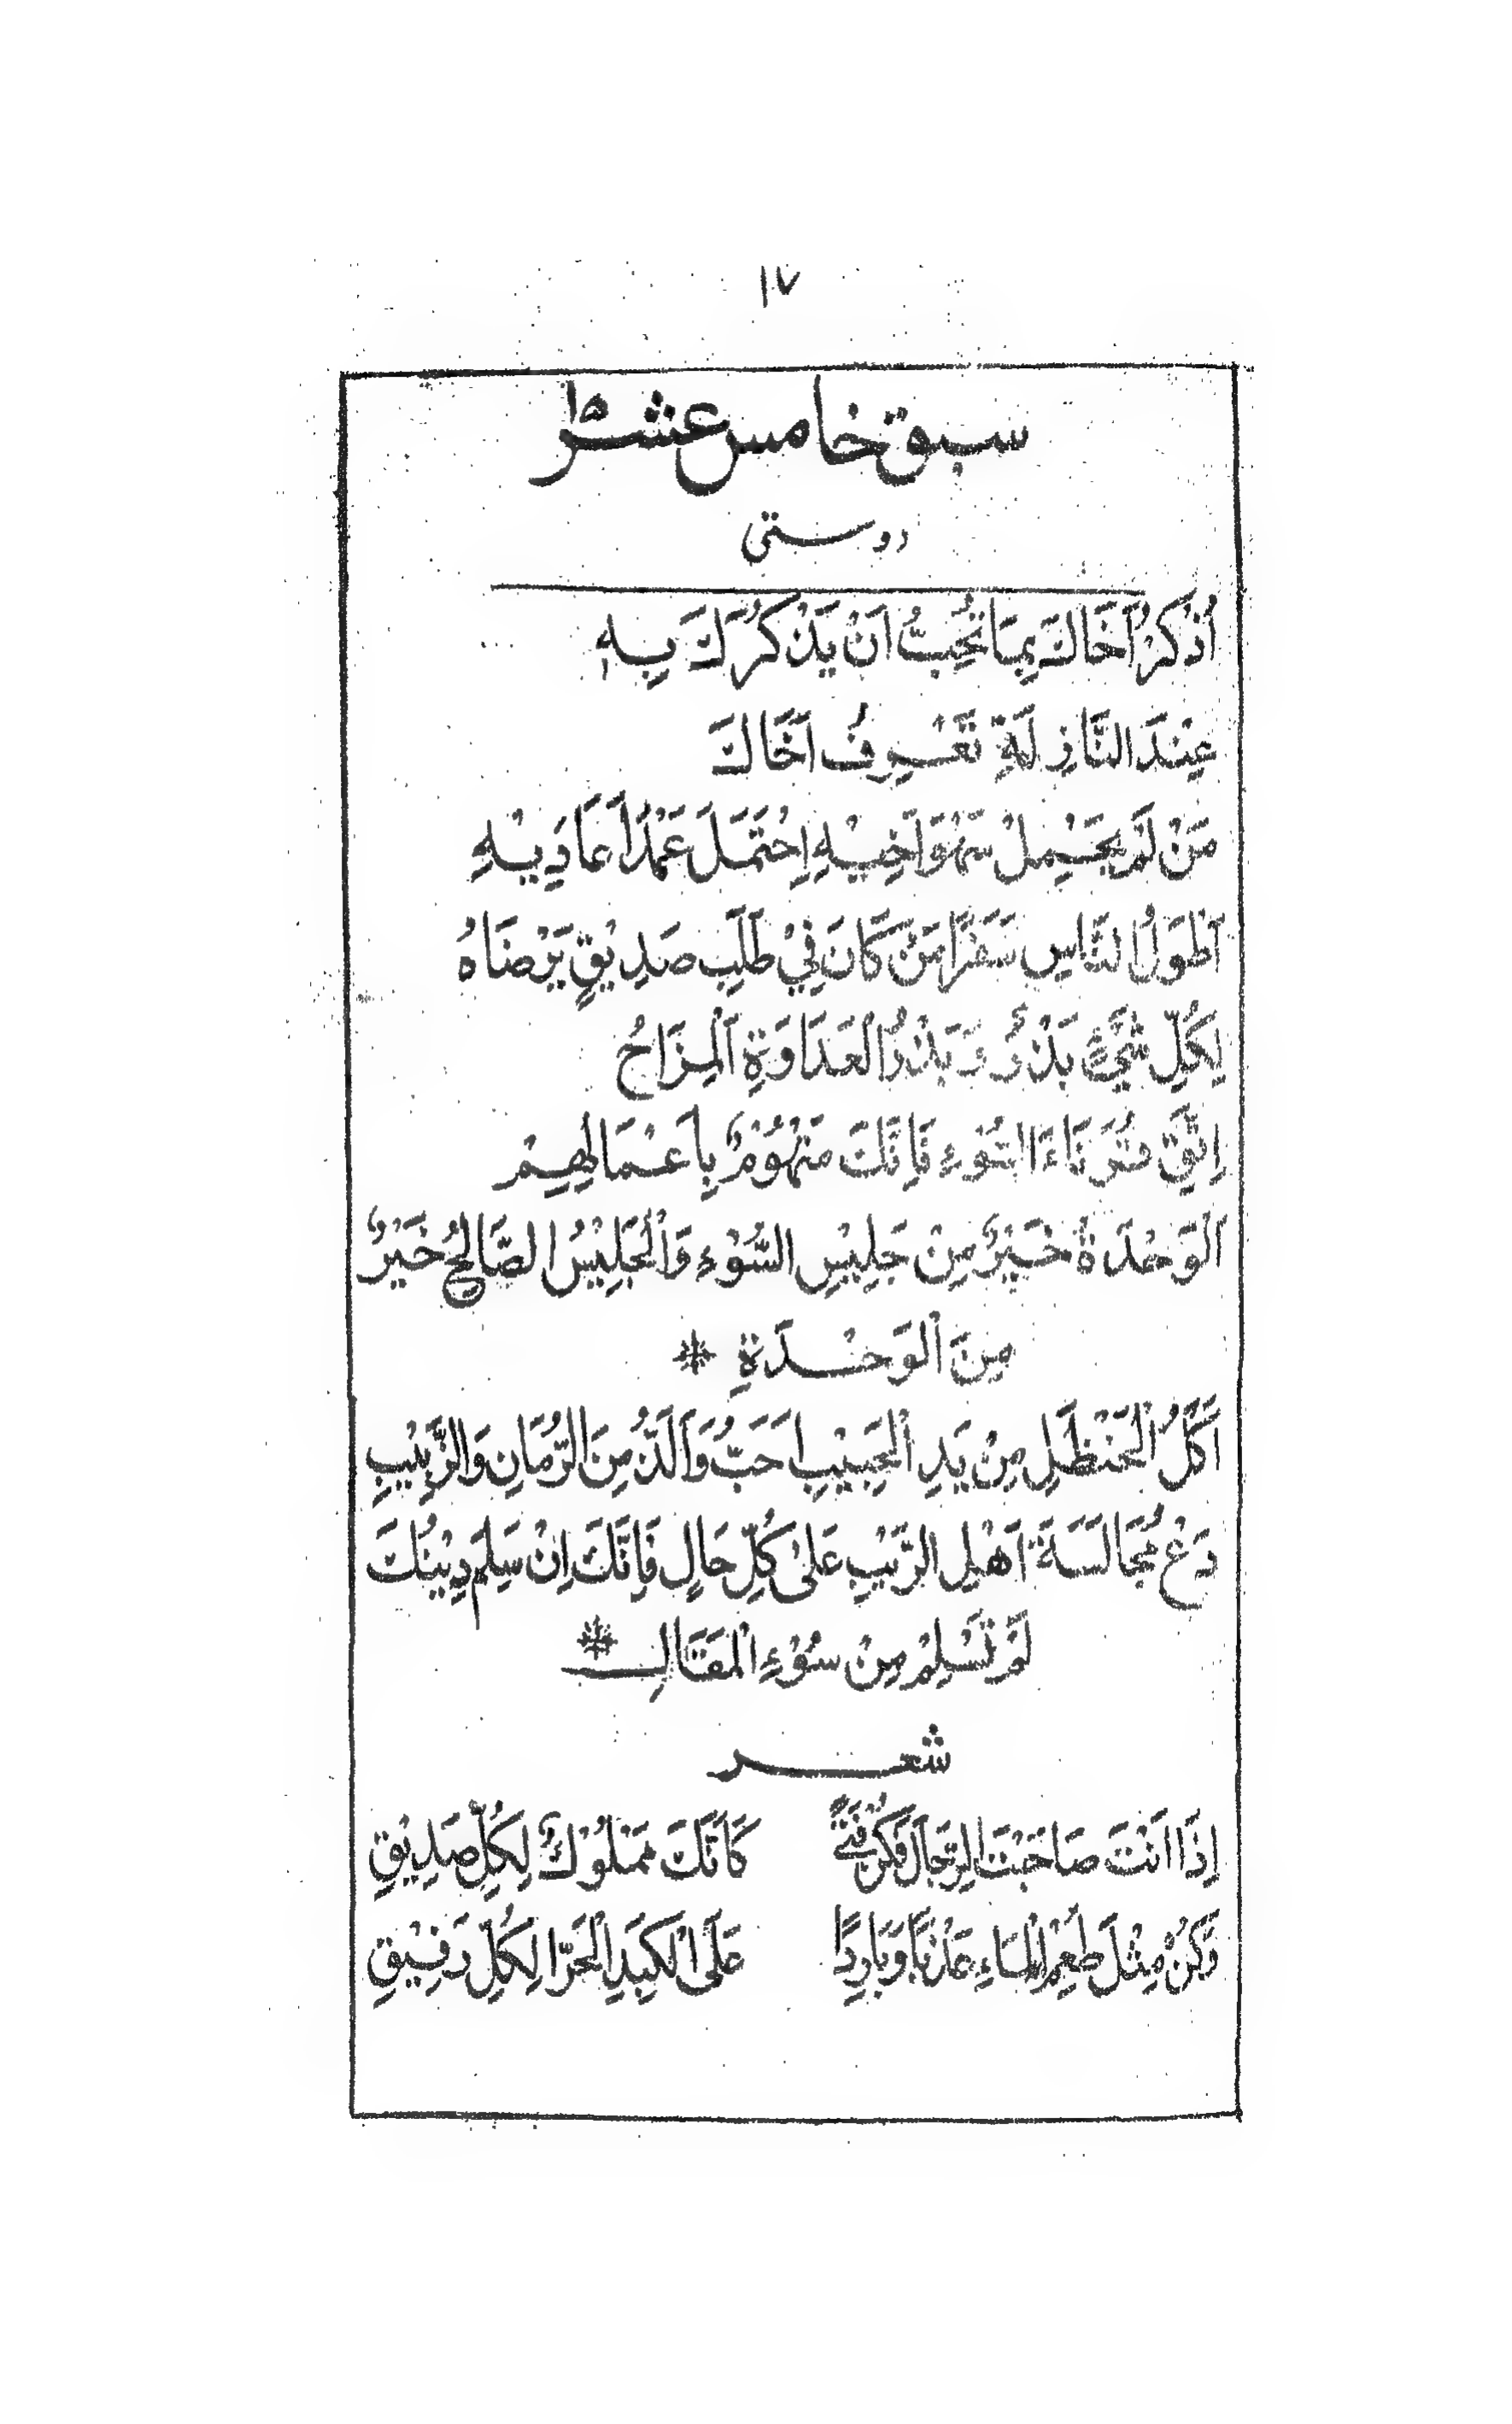 ١٧
سبق خامس عشر
دوستی
اُذْكُرْ اَخَاكَ بِمَا تُحِبُّ اَنْ يَذْكُرَكَ بِهٖ
عِنْدَ النَّازِلَةِ تَعْرِفُ اَخَاكَ
مَنْ لَمْ يَحْتَمِلْ سَهْوَ اَخِيْهِ اِحْتَمَلَ عَمْدَ اَعَادِيْهِ
اَطْوَلُ النَّاسِ سَفَرًا مَنْ كَانَ فِيْ طَلَبِ صَدِيْقٍ يَرْضَاهُ
لِكُلِّ شَيْءٍ بَذْرٌ وَ بَذْرُ الْعَدَاوَةِ اَلْمِزَاحُ
اِتَّقِ قُرَنَاءَ السُّوْءِ فَاِنَّكَ مَتْهُوْمٌ بِاَعْمَالِهِمْ
اَلْوَحْدَةُ خَيْرٌ مِنْ جَلِيْسِ السُّوْءِ وَالْجَلِيْسُ الصَّالِحُ خَيْرٌ
مِنَ الْوَحْدَةِ *
اَكْلُ الْحَنْظَلِ مِنْ يَدِ الْحَبِيْبِ اَحَبُّ وَاَلَذُّ مِنَ الرُّمَانِ وَالزَّبِيْبِ
دَعْ مُجَالَسَةَ اَهْلِ الرَّيْبِ عَلٰى كُلِّ حَالٍ فَاِنَّكَ اِنْ سَلِمَ دِيْنُكَ
لَمْ تَسْلِمْ مِنْ سُوْءِ الْمَقَالِ *
شعر
اِذَا اَنْتَ صَاحَبْتَ الرِّجَالَ فَكُنْ فَتًى كَاَنَّكَ مَمْلُوْكٌ لِكُلِّ صَدِيْقٍ
وَكُنْ مِثْلَ طَعْمِ الْمَاءِ عَذْبًا وَبَارِدًا عَلَى الْكَبِدِ الْحَرَّا لِكُلِّ رَفِيْقٍ